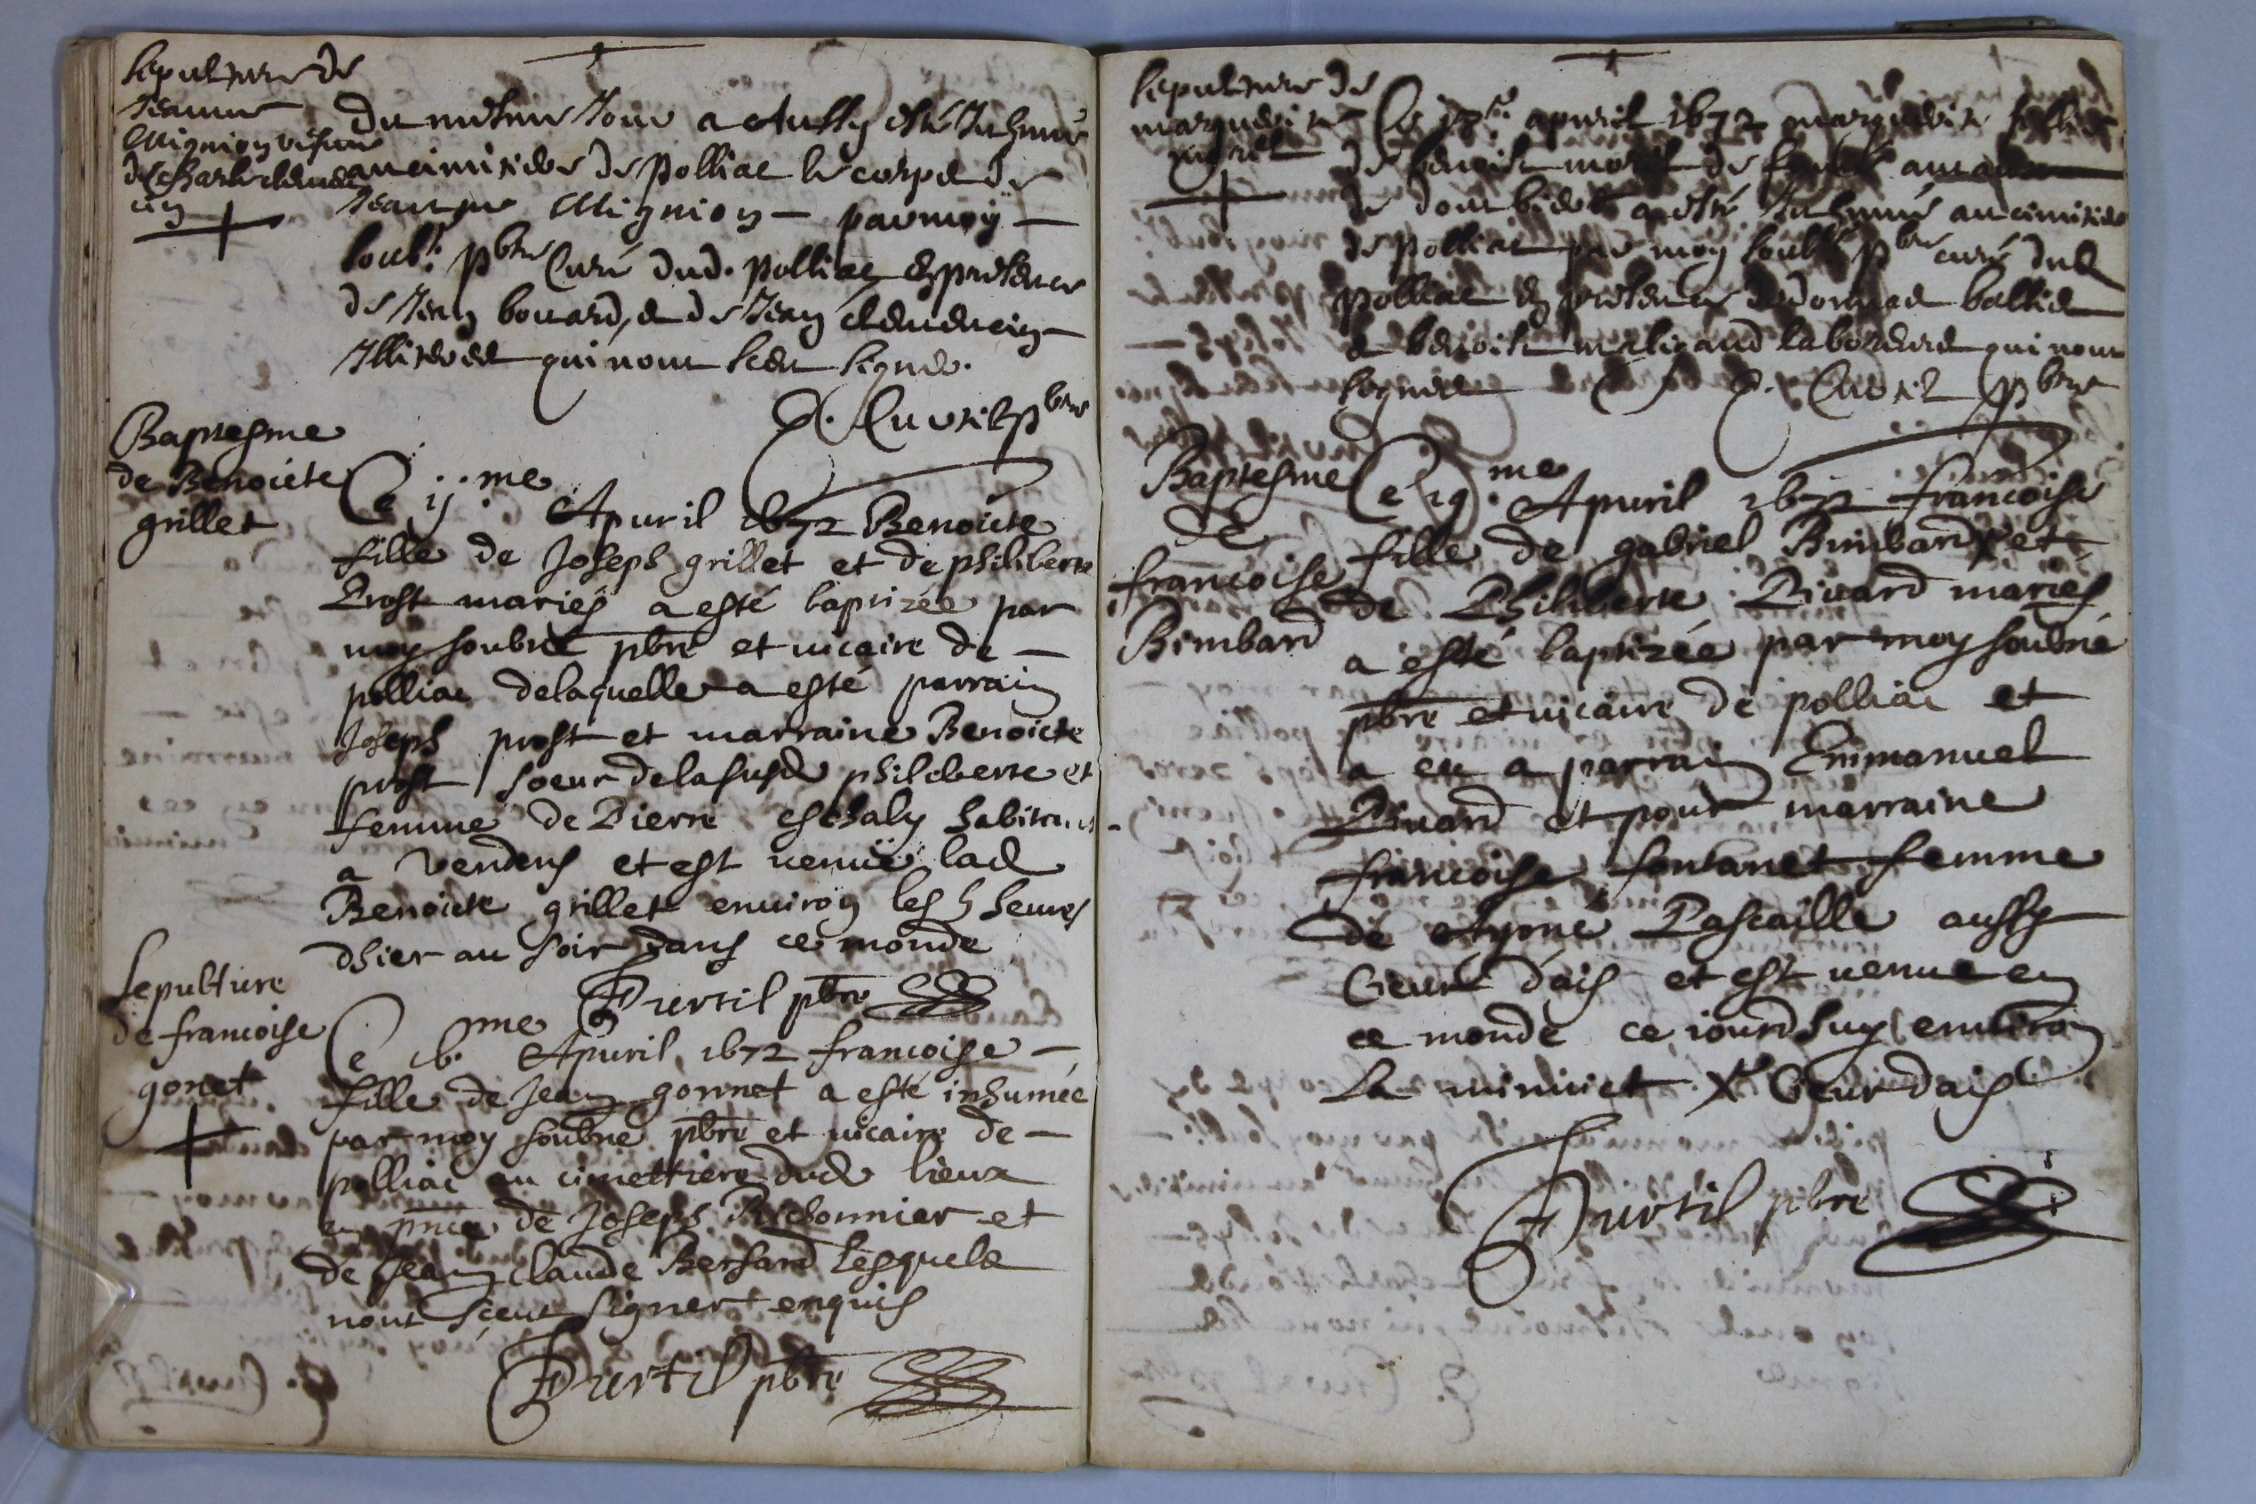 sepulture de
Jeanne
Mignion vefve
de Charle
Du mesme Jour a Aussy esté Inhumé
au cimitiere de Polliac le corps de
Jeanne Mignion – par moy –
soub.é pbre Curé dud. Polliac En presence
de Jean bouard, et de Jean
Illiteres qui nont sceu signer.
Curtil pbre
Baptesme
de Benoicte
grillet
Ce ij.me Apuril 1672 Benoicte
fille de Joseph grillet et de philiberte
Prost mariés a esté baptizée par
moy soubné pbre et vicaire de –
polliac de laquelle a esté parrain
Joseph prost et marraine Benoicte
prost soeur de la susd philiberte et
femme de Pierre eschaly habitans
a Vendens et est venüe lad
Benoicte grillet environ les 5 heures
dhier au soir dans ce monde
Durtil pbre
sepulture
de francoise
gonet
Ce 16.me Apuril 1672 francoise –
fille de Jean gonnet a esté inhumée
par moy soubné pbre et vicaire de –
polliac au cimettiere dud lieux
en pnce de Joseph Bichonnier et
de Jean claude Berhard lesquels
nont sceut signer enquis
Durtil pbre
sepulture de
marguerite
morel
Ce apuril 1672 marguerite fillie
de benoist morel de
de a esté Inhumé au cimitiere
de polliac par moy soubné pbre curé dud
Polliac En presence de
et benoist laboureurs qui nont
signer Curtil pbre
Baptesme
de
francoise
Bimbard
Ce 19.me Apuril 1672 francoise
fille de gabriel Bimbard et
de Philiberte Pivard mariés
a esté baptizée par moy soubné
pbre et vicaire de polliac et
a eu a parrain Emmanuel
Pivard et pour marraine
francoise fontanet femme
de Aymé Pascaille aussy
Cieur dais et est venue en
ce monde ce iourdhuy environ
La minuict X Cieur dais
Durtil pbre